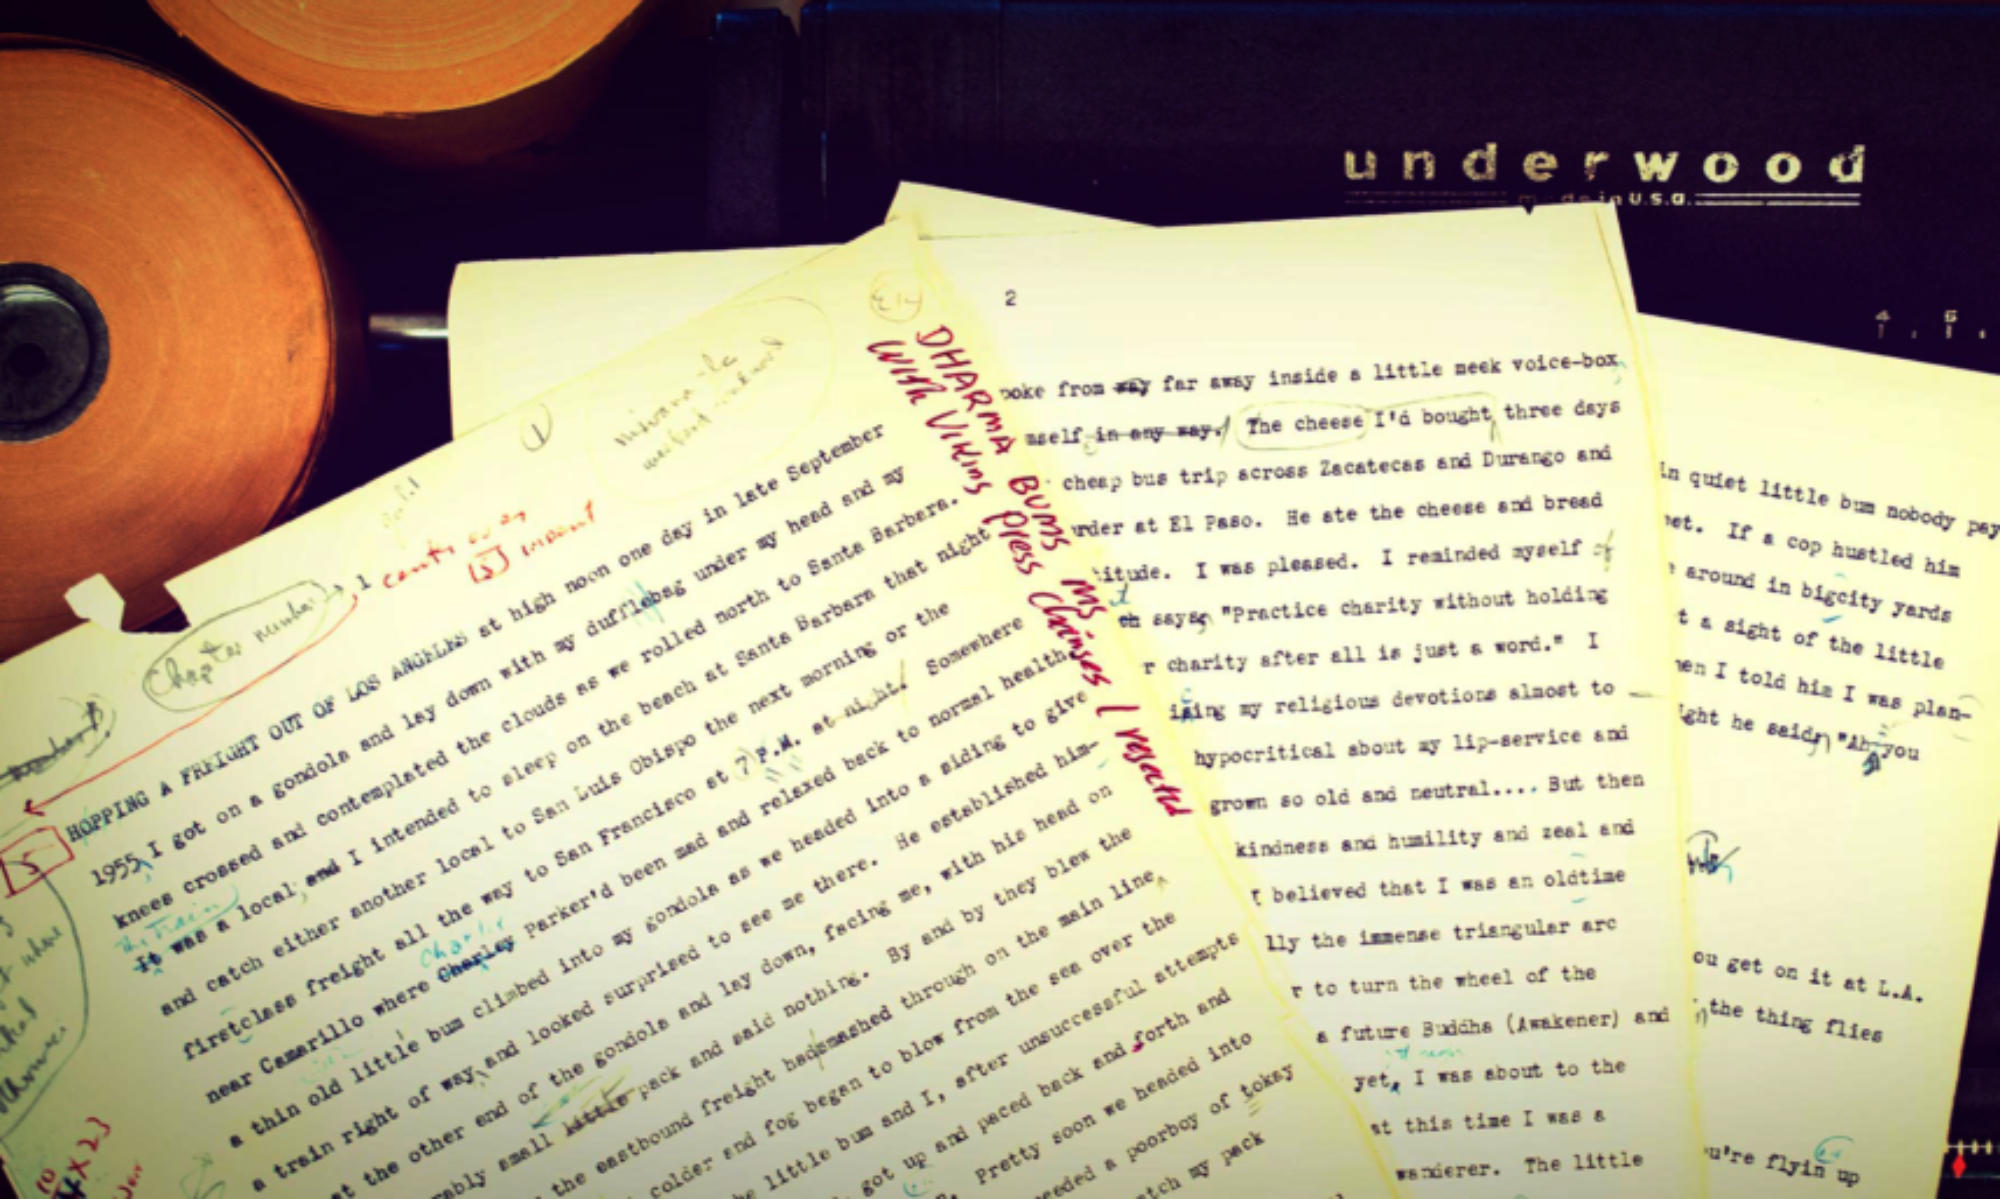 underwood
made in U.S.a.
4 5
1
Chapter number
1
HOPPING A FREIGHT OUT OF LOS ANGELES at high noon one day in late September
1955, I got on a gondola and lay down with my dufflebag under my head and my
knees crossed and contemplated the clouds as we rolled north to Santa Barbara.
The Train
It was a local, and I intended to sleep on the beach at Santa Barbara that night
and catch either another local to San Luis Obispo the next morning or the
firstclass freight all the way to San Francisco at 7 P.M. at night. Somewhere
Charlie
near Camarillo where Charley Parker'd been mad and relaxed back to normal health
a thin old little bum climbed into my gondola as we headed into a siding to give
a train right of way, and looked surprised to see me there. He established him-
at the other end of the gondola and lay down, facing me, with his head on
rably small little pack and said nothing. By and by they blew the
the eastbound freight had smashed through on the main line
colder and fog began to blow from the sea over the
he little bum and I, after unsuccessful attempts
got up and paced back and forth and
Pretty soon we headed into
needed a poorboy of tokay
tch my pack
DHARMA BUMS MS
With Viking Press Changes I rejected
2
poke from way far away inside a little meek voice-box
mself in any way. The cheese I'd bought three days
cheap bus trip across Zacatecas and Durango and
rder at El Paso. He ate the cheese and bread
titude. I was pleased. I reminded myself of
ch says, "Practice charity without holding
r charity after all is just a word." I
ising my religious devotions almost to
hypocritical about my lip-service and
grown so old and neutral.... But then
kindness and humility and zeal and
I believed that I was an oldtime
lly the immense triangular arc
r to turn the wheel of the
a future Buddha (Awakener) and
yet, I was about to the
at this time I was a
wanderer. The little
in quiet little bum nobody pay
et. If a cop hustled him
around in bigcity yards
t a sight of the little
hen I told him I was plan-
ight he said, "Ah you
ou get on it at L.A.
the thing flies
u're flyin up